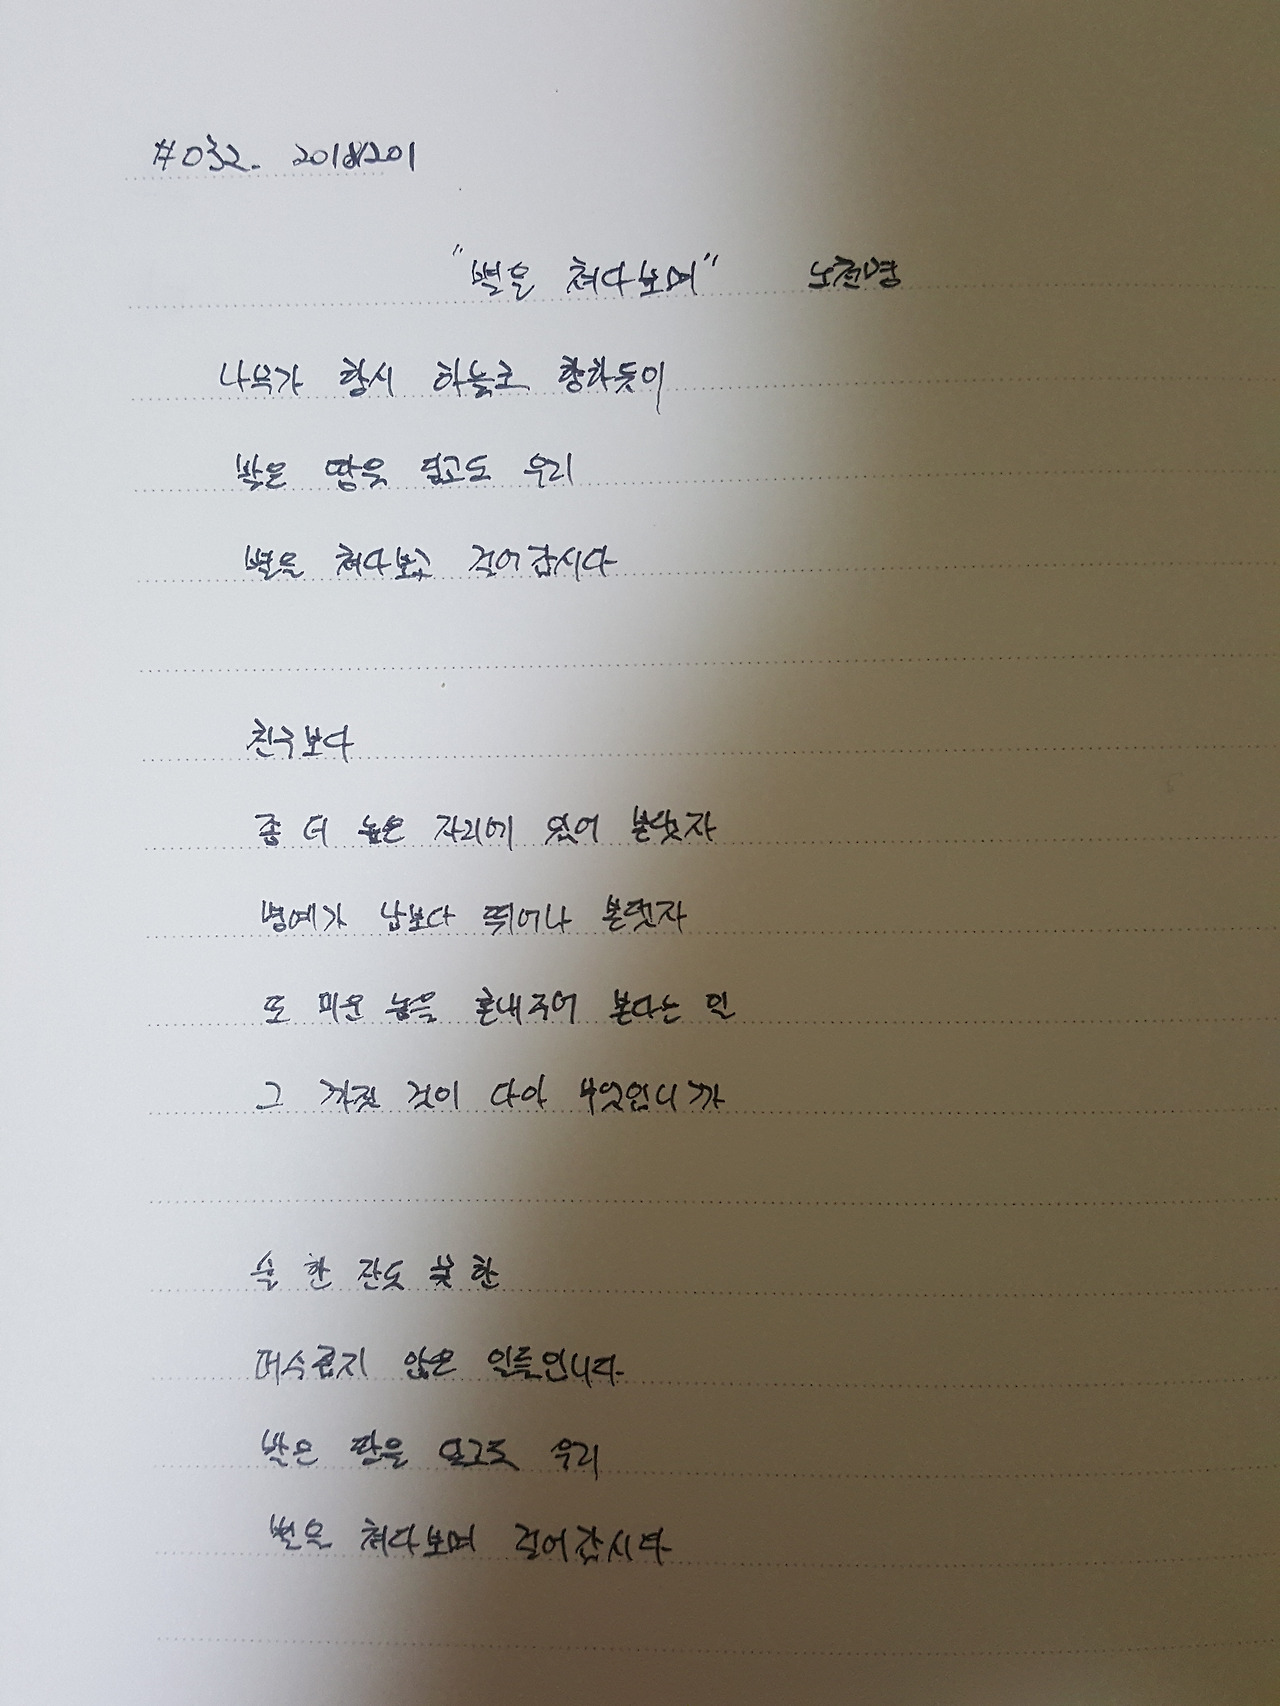 #032. 20181201
"별을 쳐다보며" 노천명
나무가 항시 하늘로 향하듯이
발은 땅을 딛고도 우리
별을 쳐다보고 걸어갑시다
친구보다
좀 더 높은 자리에 있어 본댓자
명예가 남보다 뛰어나 본댓자
또 미운 놈을 혼내주어 본다는 일
그 까짓 것이 다아 무엇입니까
술 한 잔도 못 한
대수롭지 않은 일들입니다
발은 땅을 딛고도 우리
별을 쳐다보며 걸어갑시다